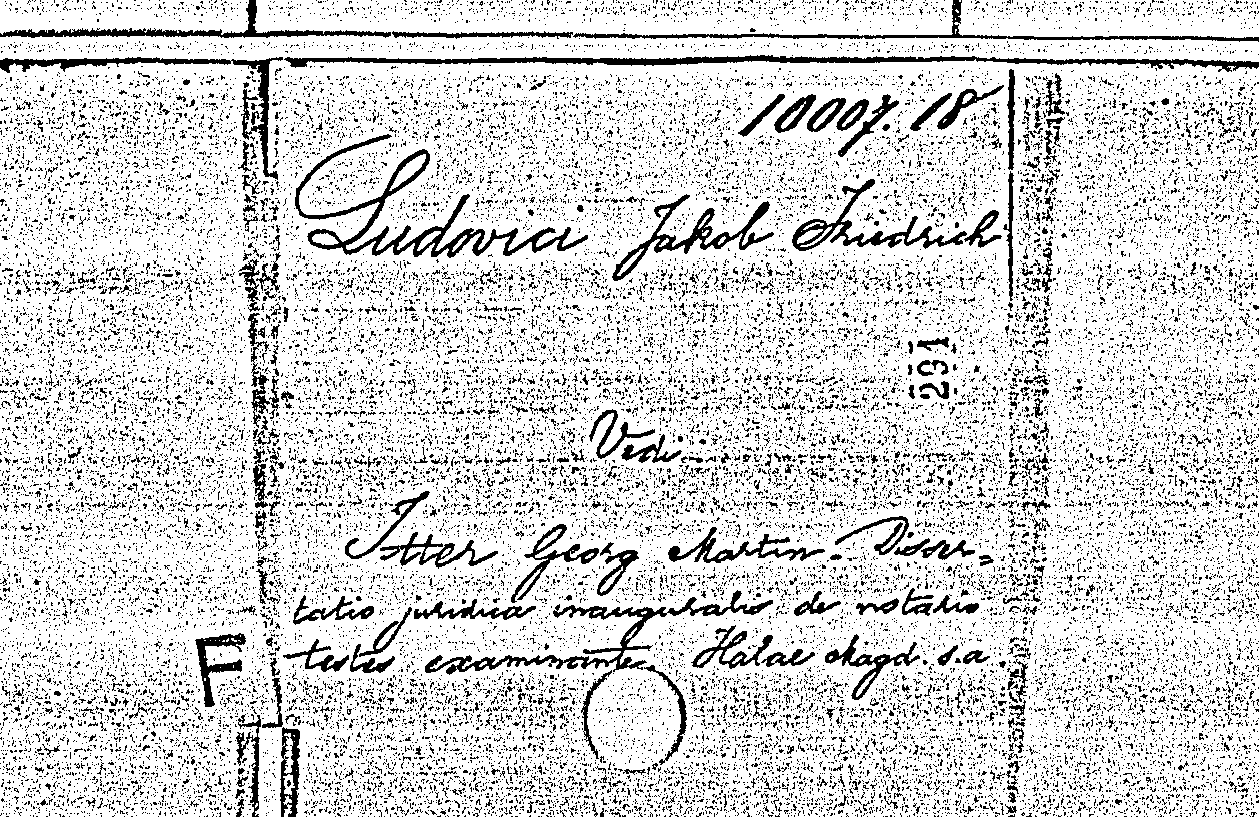 10007.18
Ludovici Jakob Friedrich
291
Vedi:
Itter Georg Martin. Disser=
tatio juridica inauguralis de notario
testes examinante. Halae Magd. s.a.
F